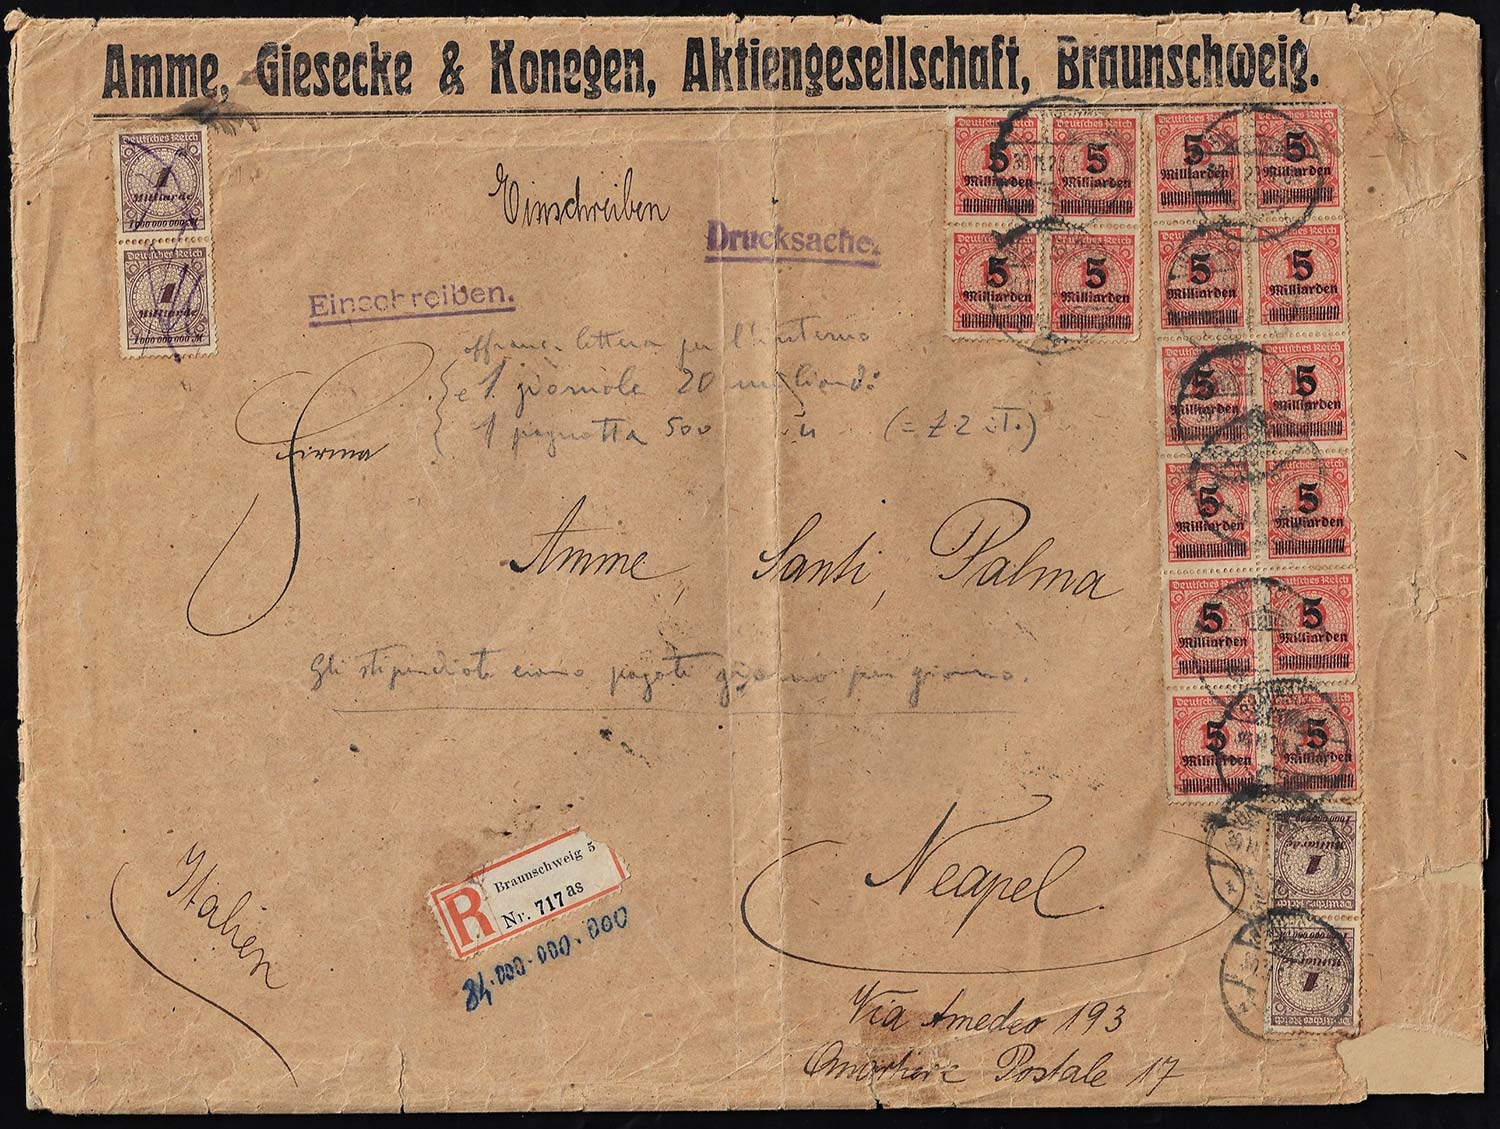 Amme, Giesecke & Konegen, Aktiengesellschaft, Braunschweig.
Deutsches Reich
1
Milliarde
1000 000 000 M
Deutsches Reich
1
Milliarde
1000 000 000 M
Einschreiben
Drucksache.
Einschreiben.
Deutsches Reich Deutsches Reich Deutsches Reich Deutsches Reich
5 5 5 5
Milliarden Milliarden Milliarden Milliarden
Deutsches Reich Deutsches Reich Deutsches Reich Deutsches Reich
5 5 5 5
Milliarden Milliarden Milliarden Milliarden
Deutsches Reich Deutsches Reich
5 5
Milliarden Milliarden
Deutsches Reich Deutsches Reich
5 5
Milliarden Milliarden
Deutsches Reich Deutsches Reich
5 5
Milliarden Milliarden
Deutsches Reich Deutsches Reich
5 5
Milliarden Milliarden
1000 000 000
1
Milliarde
Deutsches Reich
1000 000 000 M
1
Milliarde
Deutsches Reich
affranc. lettera per l'interno
e 1 giornale 20 miliardi
1 pagnotta 500 " (= £ 2 it.)
Firma
Amme, Santi, Palma
Gli stipendiati erano pagati giorno per giorno.
Neapel.
Italien
R
Braunschweig 5
Nr. 717 as
84.000.000.000
Via Amedeo 193
Postale 17